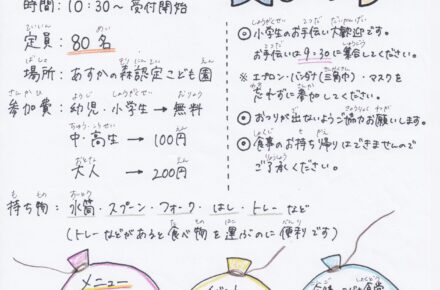 時間：10：30～ 受付開始
定員：80名
場所：あすかの森認定こども園
参加費：幼児・小学生→無料
中・高生→100円
大人→200円
◎小学生のお手伝い大歓迎です。
お手伝いは9：30に集合してください。
※エプロン・バンダナ(三角巾)・マスクを
忘れずに参加してください。
◎おつりが出ないようご協力お願いします。
◎食事のお持ち帰りはできませんので
ご了承ください。
持ち物：水筒・スプーン・フォーク・はし・トレーなど
(トレーなどがあると食べ物を運ぶのに便利です)
メニュー